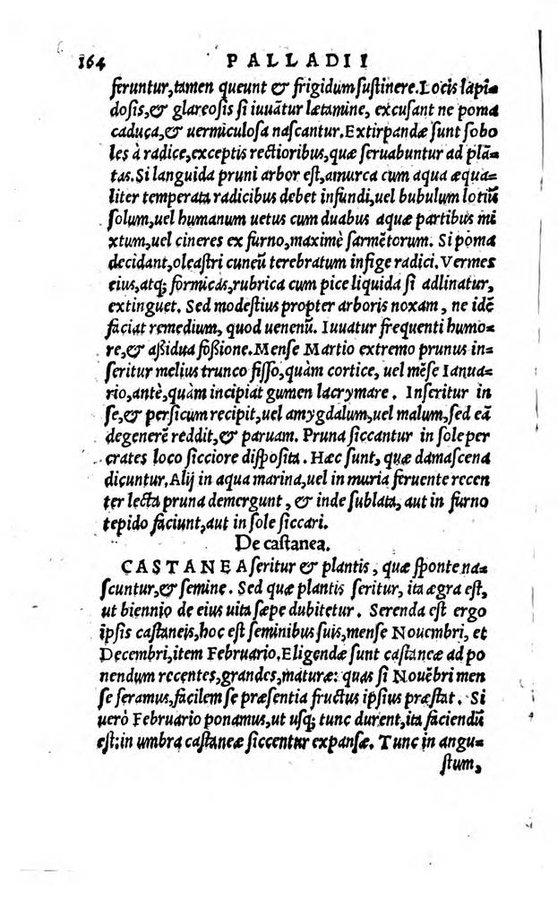 164 PALLADII
feruntur,tamen queunt & frigidum ſuſtinere.Locis lapi-
doſis,& glareoſis ſi iuuãtur lætamine, excuſant ne poma
caduca,& uermiculoſa naſcantur.Extirpandæ ſunt ſobo
les à radice,exceptis rectioribus,quæ ſeruabuntur ad plã-
tas.Si languida pruni arbor eſt,amurca cum aqua æqua-
liter temperata radicibus debet infundi,uel bubulum lotiũ
ſolum,uel humanum uetus cum duabus aquæ partibus mi
xtum,uel cineres ex furno,maximè ſarmẽtorum. Si poma
decidant,oleaſtri cuneũ terebratum infige radici. Vermes
eius,atq; formicas,rubrica cum pice liquida ſi adlinatur,
extinguet. Sed modeſtius propter arboris noxam, ne idẽ
faciat remedium, quod uenenũ. Iuuatur frequenti humo-
re,& aßidua foßione.Menſe Martio extremo prunus in-
ſeritur melius trunco fiſſo,quàm cortice, uel mẽſe Ianua-
rio,antè,quàm incipiat gumen lacrymare. Inſeritur in
ſe,& perſicum recipit,uel amygdalum,uel malum,ſed eã
degenerẽ reddit,& paruam. Pruna ſiccantur in ſole per
crates loco ſicciore diſpoſita. Hæc ſunt, quæ damaſcena
dicuntur.Alij in aqua marina,uel in muria feruente recen
ter lecta pruna demergunt, & inde ſublata, aut in furno
tepido faciunt,aut in ſole ſiccari.
De caſtanea.
CASTANEA ſeritur & plantis, quæ ſponte na-
ſcuntur,& ſemine. Sed quæ plantis ſeritur, ita ægra eſt,
ut biennio de eius uita ſæpe dubitetur. Serenda eſt ergo
ipſis caſtaneis,hoc eſt ſeminibus ſuis,menſe Nouembri, et
Decembri,item Februario.Eligendæ ſunt caſtaneæ ad po
nendum recentes,grandes,maturæ: quas ſi Nouẽbri men
ſe ſeramus,facilem ſe præſentia fructus ipſius præſtat. Si
uerò Februario ponamus,ut uſq; tunc durent,ita faciendũ
eſt:in umbra caſtaneæ ſiccentur expanſæ. Tunc in angu-
ſtum,